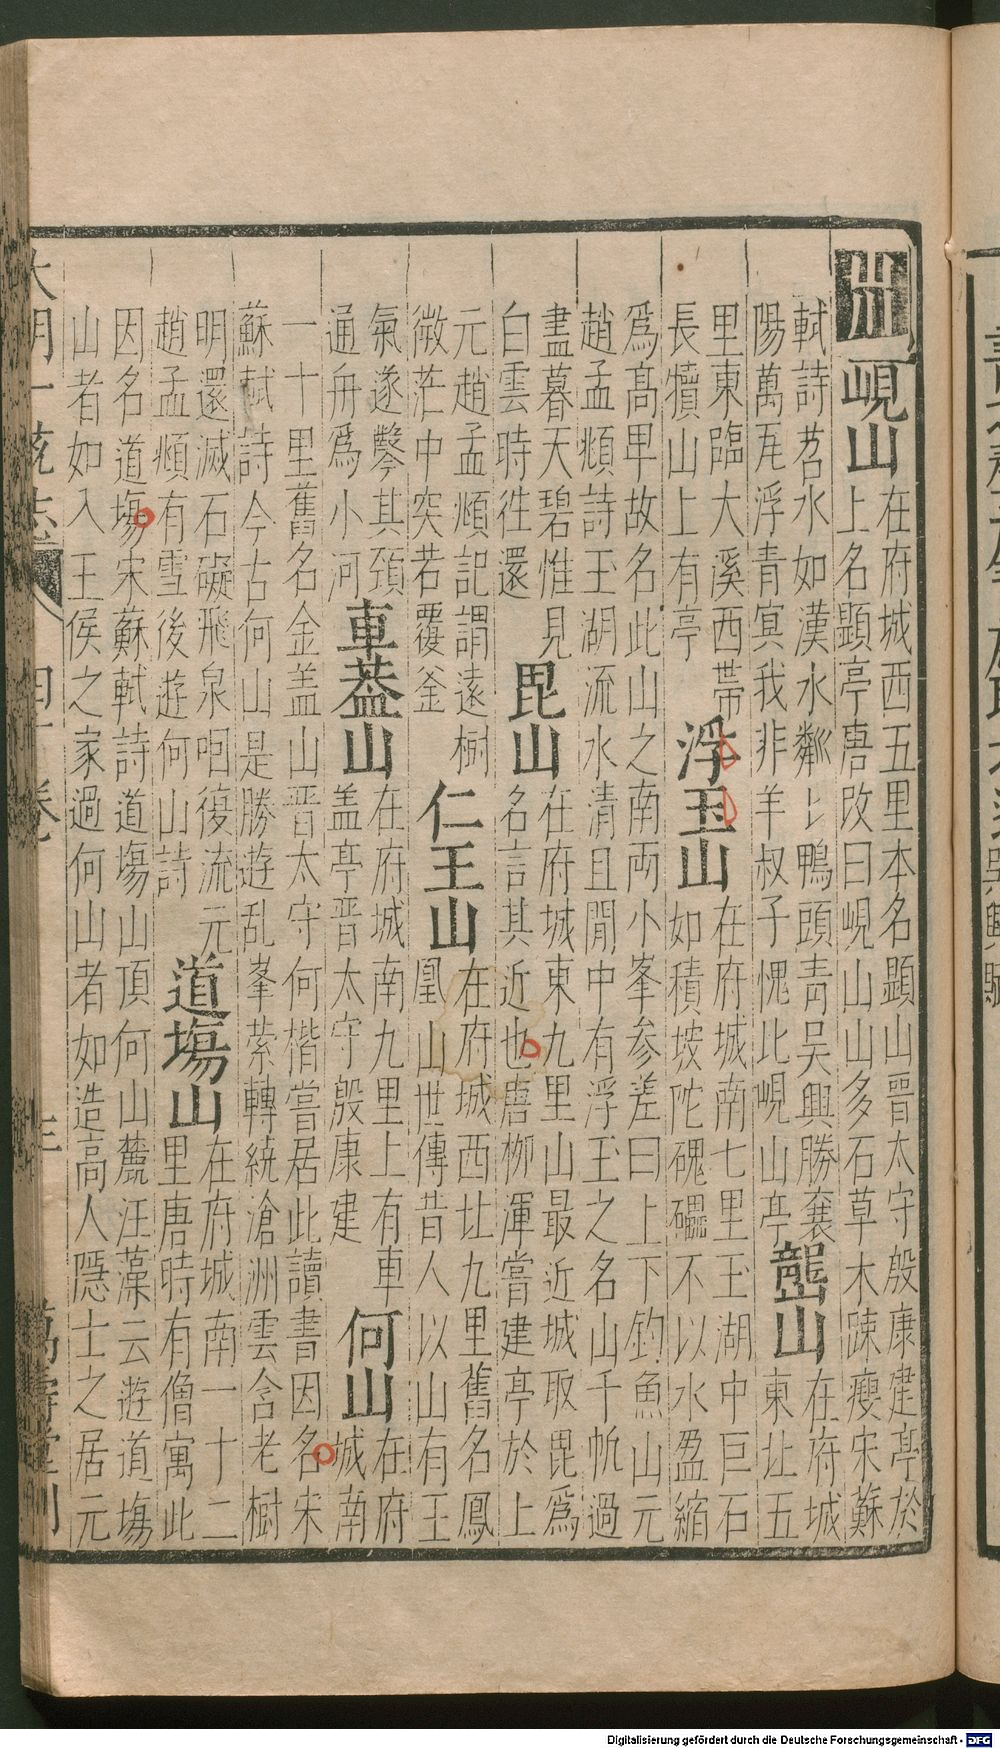 峴山
在府城西五里本名顯山晉太守殷康建亭於
上名顯亭唐改曰峴山山多石草木踈瘦宋蘇
軾詩苕水如漢水粼〻鴨頭青吴興勝襄
陽萬瓦浮青冥我非羊叔子愧比峴山亭
壟山
在府城
東北五
里東臨大溪西帶
長犢山上有亭
浮玉山
在府城南七里玉湖中巨石
如積坡陀磈礧不以水盈縮
爲髙早故名此山之南兩小峯参差曰上下釣魚山元
趙孟頫詩玉湖流水清且閒中有浮玉之名山千帆過
盡暮天碧惟見
白雲時徃還
毘山
在府城東九里山最近城取毘爲
名言其近也唐柳渾嘗建亭於上
元趙孟頫記謂遠樹
微茫中突若覆釜
仁王山
在府城西北九里舊名鳳
凰山世傳昔人以山有王
氣遂鑿其頸
通舟爲小河
車葢山
在府城南九里上有車
盖亭晋太守殷康建
何山
在府
城南
一十里舊名金盖山晉太守何楷嘗居此讀書因名宋
蘇軾詩今古何山是勝遊乱峯縈轉繞滄洲雲含老樹
明還滅石礙飛泉咽復流元
趙孟頫有雪後遊何山詩
道塲山
在府城南一十二
里唐時有僧寓此
因名道塲宋蘇軾詩道塲山頂何山麓汪藻云遊道塲
山者如入王侯之家過何山者如造高人隱士之居元
大明一統志
四十卷
三
萬壽堂刊
Digitalisierung gefördert durch die Deutsche Forschungsgemeinschaft - DFG